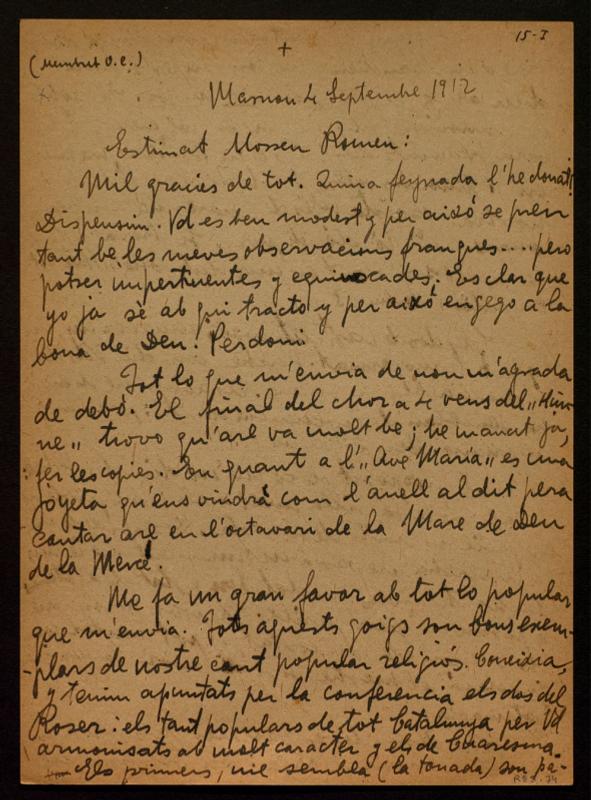 15-I
+
Masnou 4 Septembre 1912
Estimat Mossen Romeu:
Mil gracies de tot. Quina feynada l'he donat!
Dispensim. Vd es ben modest y per aixó se pren
tant be les meves observacions franques.... pero
potser impertinentes y equivocades. Es clar que
yo ja sè ab qui tracto y per aixó engego a la
bona de Deu! Perdoni
Tot lo que m'envia de nou m'agrada
de debó. El final del chor a 4 veus del "Him-
ne" trovo qu'are va molt be; he manat ja,
fer les copies. En quant a l'"Ave María" es una
joyeta qu'ens vindrá com l'anell al dit pera
cantar are en l'octavari de la Mare de Deu
de la Mercé.
Me fa un gran favor ab tot lo popular
que m'envia. Tots aquests goigs son bons exem-
plars de nostre cant popular religiós. Coneixia,
y tenim apuntats per la conferencia els dos del
Roser: els tant populars de tot Catalunya per Vd
armonisats ab molt caracter y els de Cuaresma.
Els primers, me sembla (la tonada) son pa-